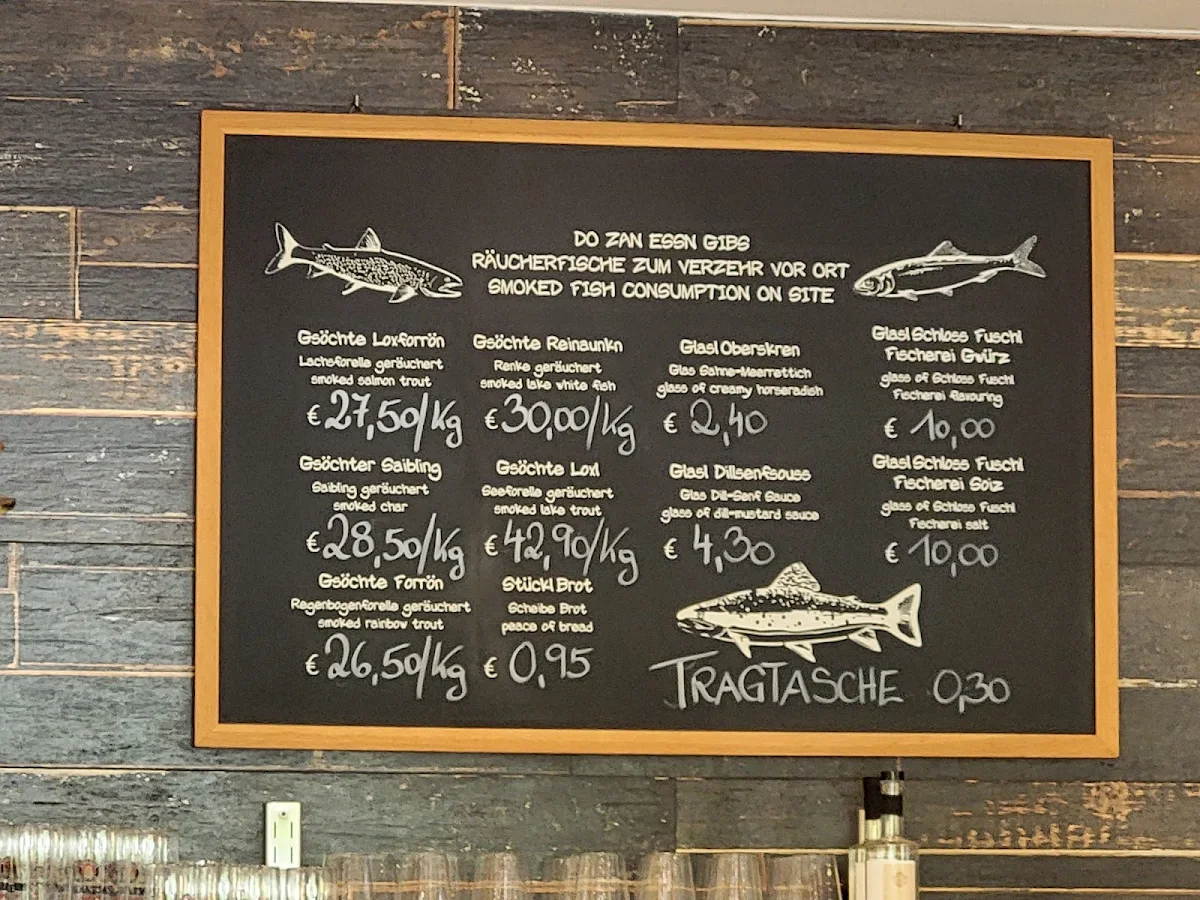 DO ZAN ESSN GIBS
RÄUCHERFISCHE ZUM VERZEHR VOR ORT
SMOKED FISH CONSUMPTION ON SITE
Gsöchte Loxforrön
Lachsforelle geräuchert
smoked salmon trout
€ 27,50/Kg
Gsöchter Saibling
Saibling geräuchert
smoked char
€ 28,50/Kg
Gsöchte Forrön
Regenbogenforelle geräuchert
smoked rainbow trout
€ 26,50/Kg
Gsöchte Reinaunkn
Renke geräuchert
smoked lake white fish
€ 30,00/Kg
Gsöchte Loxl
Seeforelle geräuchert
smoked lake trout
€ 42,90/Kg
Stückl Brot
Scheibe Brot
peace of bread
€ 0,95
Glasl Oberskren
Glas Sahne-Meerrettich
glass of creamy horseradish
€ 2,40
Glasl Dillsenfsouss
Glas Dill-Senf Sauce
glass of dill-mustard sauce
€ 4,30
Glasl Schloss Fuschl
Fischerei Gvürz
glass of Schloss Fuschl
Fischerei flavouring
€ 10,00
Glasl Schloss Fuschl
Fischerei Soiz
glass of Schloss Fuschl
Fischerei salt
€ 10,00
TRAGTASCHE 0,30